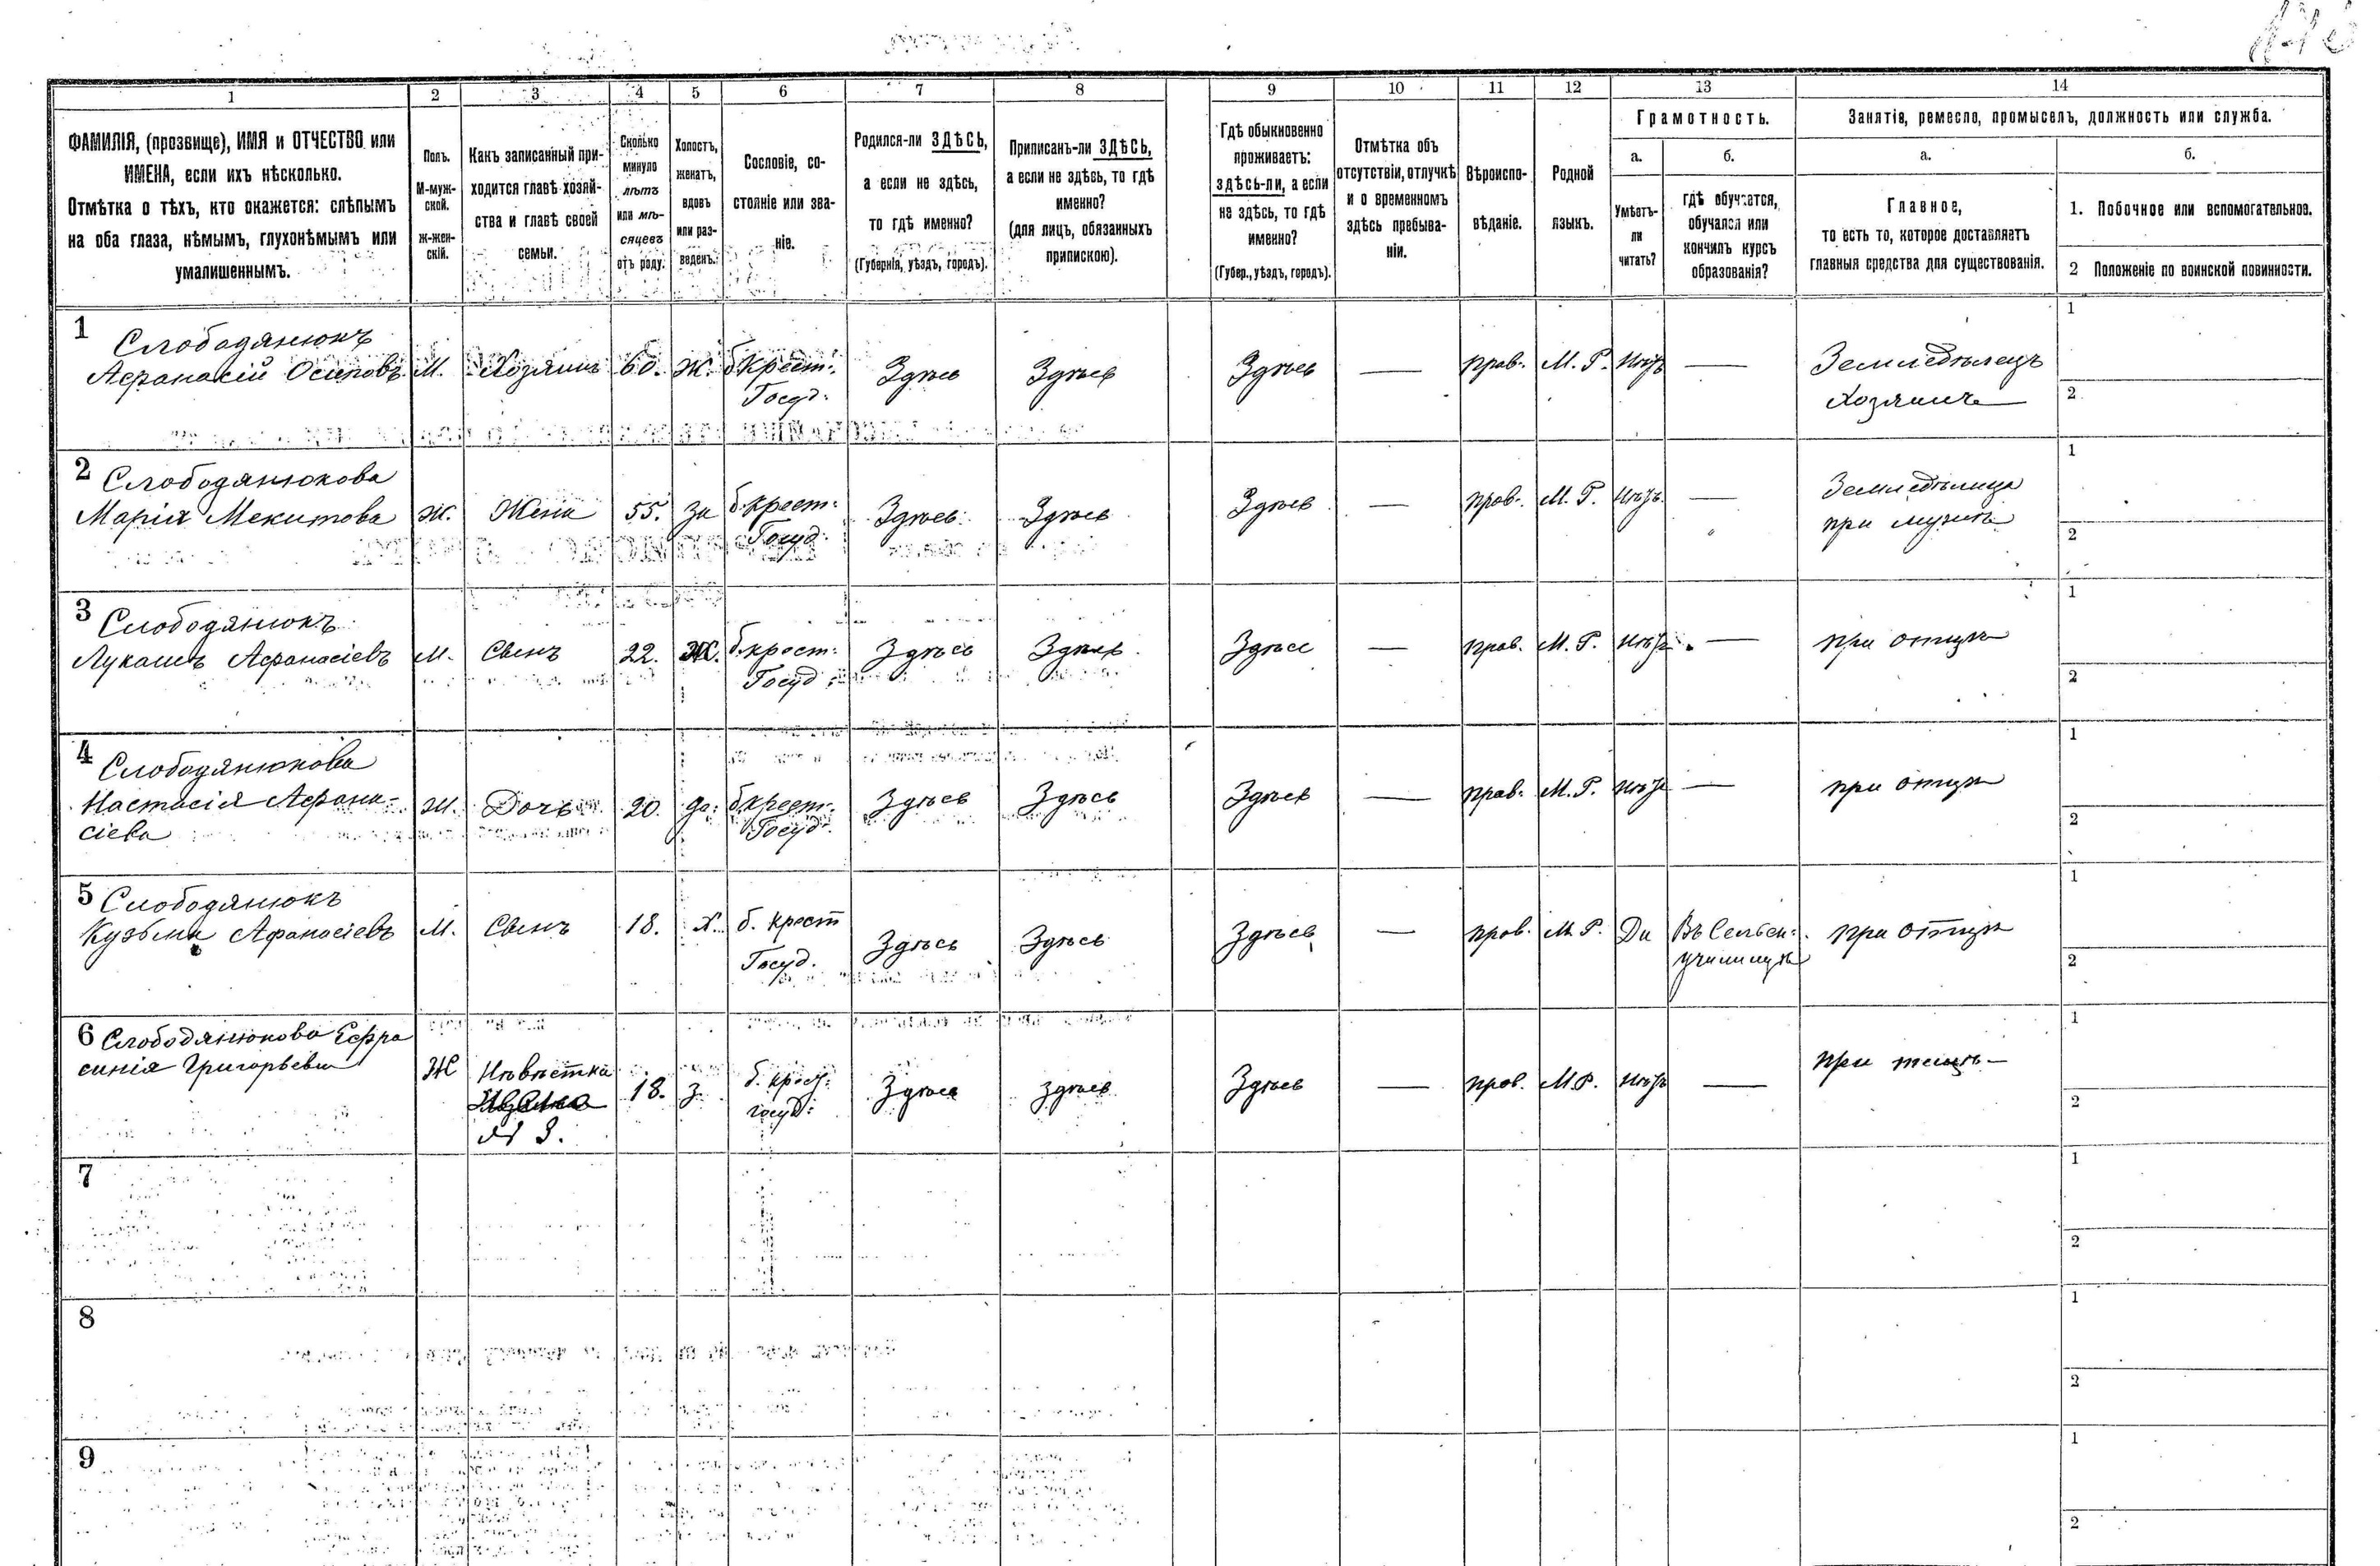 1 2 3 4 5 6 7 8 9 10 11 12 13 14
ФАМИЛІЯ, (прозвище), ИМЯ и ОТЧЕСТВО или
ИМЕНА, если ихъ нѣсколько.
Отмѣтка о тѣхъ, кто окажется: слѣпымъ
на оба глаза, нѣмымъ, глухонѣмымъ или
умалишеннымъ.
Полъ.
М-муж-
ской.
ж-жен-
скій.
Какъ записанный при-
ходится главѣ хозяй-
ства и главѣ своей
семьи.
Сколько
минуло
лѣтъ
или мѣ-
сяцевъ
отъ роду.
Холостъ,
женатъ,
вдовъ
или раз-
веденъ.
Сословіе, со-
стояніе или зва-
ніе.
Родился-ли ЗДѢСЬ,
а если не здѣсь,
то гдѣ именно?
(Губернія, уѣздъ, городъ).
Приписанъ-ли ЗДѢСЬ,
а если не здѣсь, то гдѣ
именно?
(для лицъ, обязанныхъ
припискою).
Гдѣ обыкновенно
проживаетъ:
здѣсь-ли, а если
не здѣсь, то гдѣ
именно?
(Губер., уѣздъ, городъ).
Отмѣтка объ
отсутствіи, отлучкѣ
и о временномъ
здѣсь пребыва-
ніи.
Вѣроиспо-
вѣданіе.
Родной
языкъ.
Грамотность.
а.
Умѣетъ-
ли
читать?
б.
гдѣ обучается,
обучался или
кончилъ курсъ
образованія?
Занятіе, ремесло, промыселъ, должность или служба.
а.
Главное,
то есть то, которое доставляетъ
главныя средства для существованія.
б.
1. Побочное или вспомогательное.
2 Положеніе по воинской повинности.
1 Слободянюкъ
Афанасій Осиповъ М. Хозяинъ 60. Ж. б. крест. Здѣсь Здѣсь Здѣсь — прав. М. Р. Нѣтъ — Земледѣлецъ 1
Госуд. Хозяинъ 2
2 Слободянюкова
Марія Мекитова Ж. Жена 55. за б. крест. Здѣсь Здѣсь Здѣсь — прав. М. Р. Нѣтъ — Земледѣлица 1
Госуд. при мужѣ 2
3 Слободянюкъ
Лукашъ Афанасіевъ М. Сынъ 22. Ж. б. крест. Здѣсь Здѣсь Здѣсь — прав. М. Р. Нѣтъ — при отцѣ 1
Госуд. 2
4 Слободянюкова
Настасія Афана-
сіева Ж. Дочь 20. б. крест. Здѣсь Здѣсь Здѣсь — прав. М. Р. Нѣтъ — при отцѣ 1
Госуд. 2
5 Слободянюкъ
Кузьма Афанасіевъ М. Сынъ 18. Х. б. крест Здѣсь Здѣсь Здѣсь — прав. М. Р. Да Въ Сельск. при отцѣ 1
Госуд. училищѣ 2
6 Слободянюкова Ефро
синія Григорьева Ж Невѣстка 18. з. б. крест. Здѣсь здѣсь Здѣсь — прав. М.Р. Нѣтъ — при 1
госуд. 2
№ 3.
7 1
2
8 1
2
9 1
2